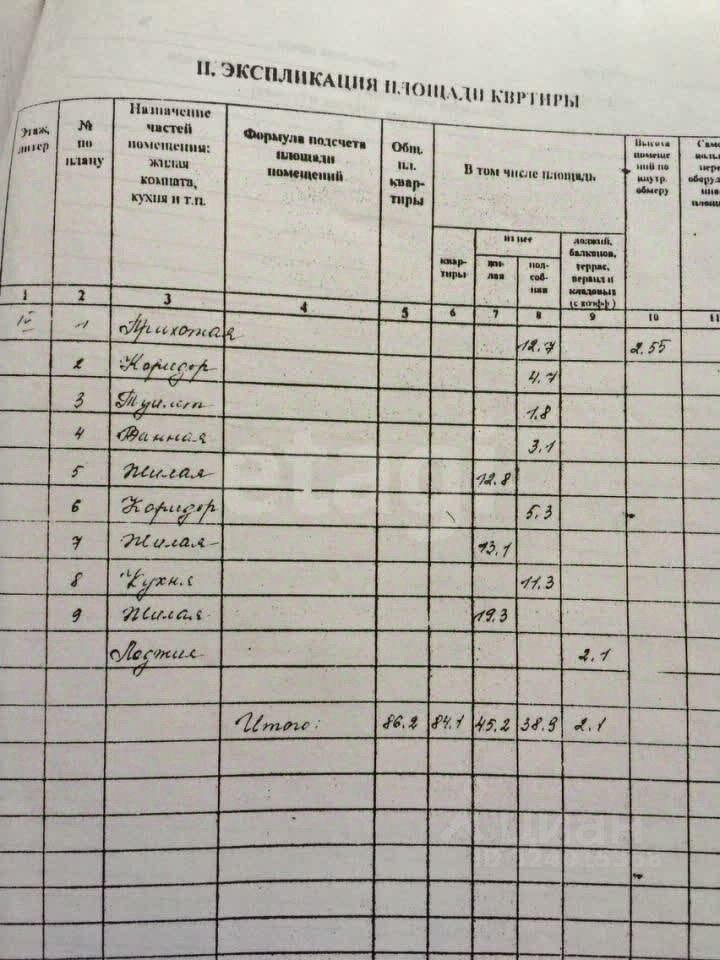 II. ЭКСПЛИКАЦИЯ ПЛОЩАДИ КВРТИРЫ
Этаж, литер
№ по плану
Назначение частей помещения: жилая комната, кухня и т.п.
Формула подсчета площади помещений
Общ. пл. квар- тиры
В том числе площадь
Высота помеще- ний по внутр. обмеру
квар- тиры
из нее
жи- лая
под- соб- ная
лоджий, балконов, террас, веранд и кладовых (с коэфф)
1 2 3 4 5 6 7 8 9 10 11
1 Прихожая 12.7 2.55
2 Коридор 4.7
3 Туалет 1.8
4 Ванная 3.1
5 Жилая 12.8
6 Коридор 5.3
7 Жилая 13.1
8 Кухня 11.3
9 Жилая 19.3
Лоджия 2.1
Итого: 86.2 84.1 45.2 38.9 2.1
etagi
Циан